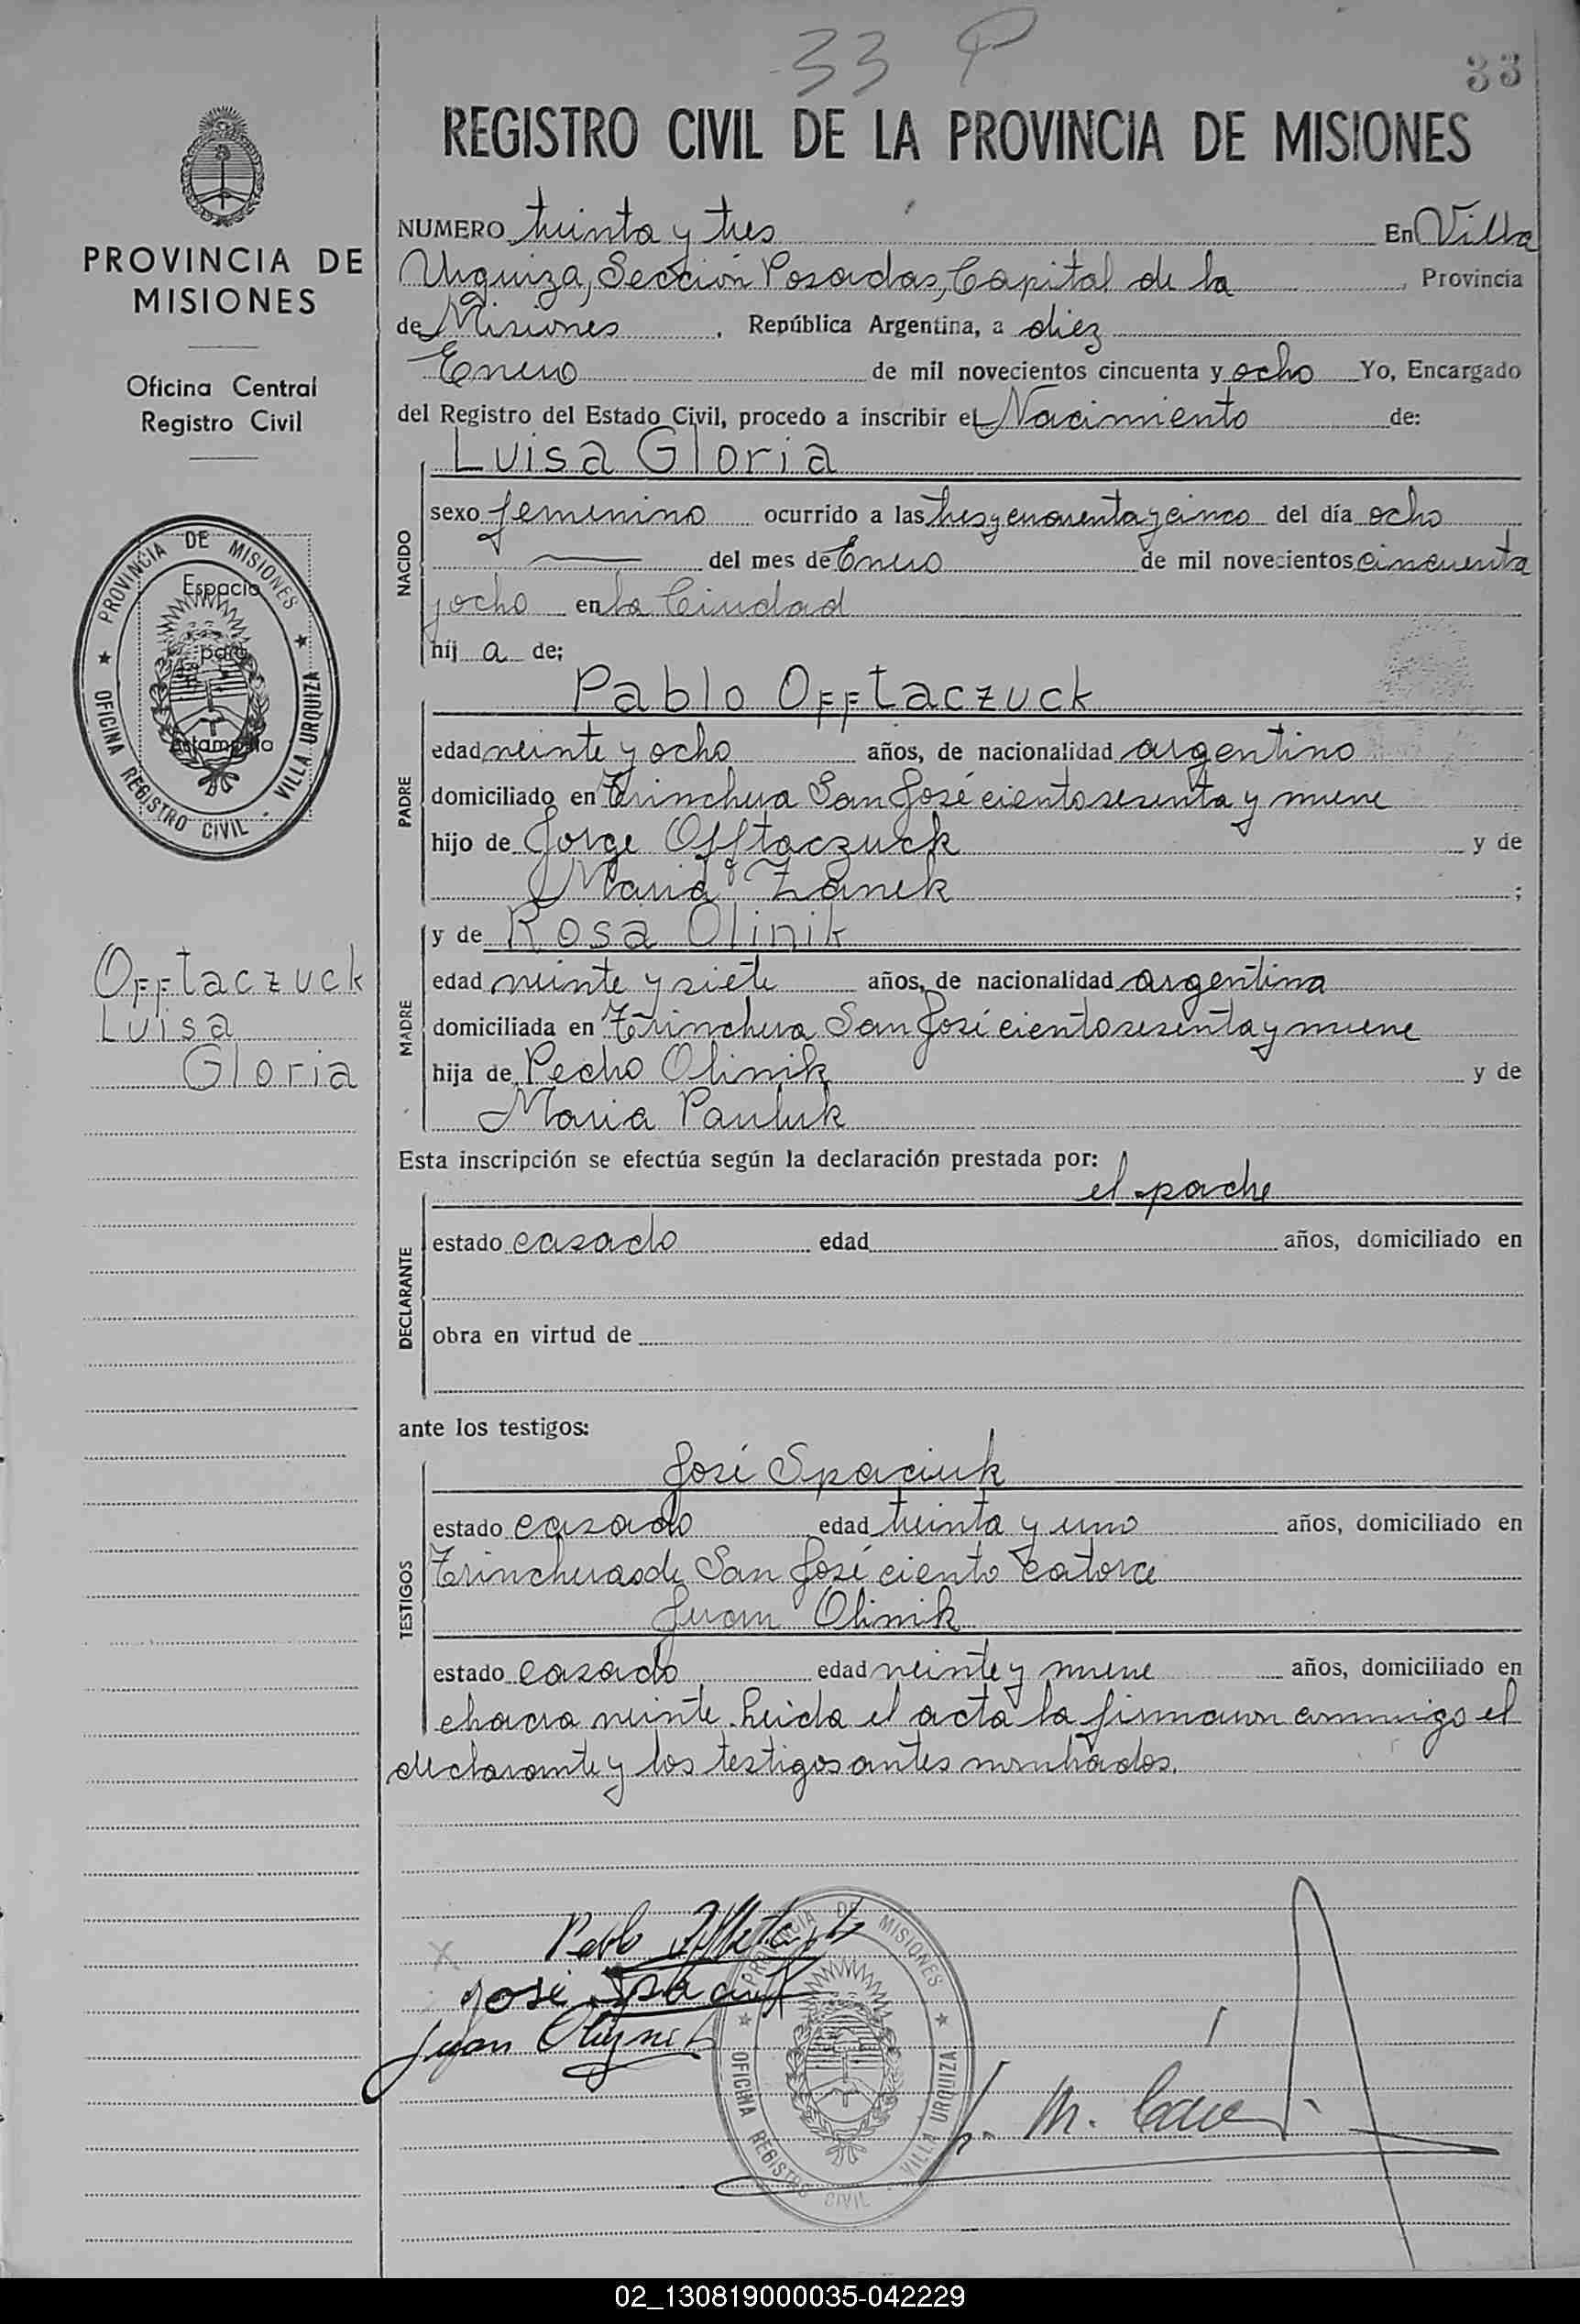 33
33
REGISTRO CIVIL DE LA PROVINCIA DE MISIONES
PROVINCIA DE
MISIONES
Oficina Central
Registro Civil
PROVINCIA DE MISIONES
OFICINA REGISTRO CIVIL - VILLA URQUIZA
Espacio
para
Estampilla
Offtaczuck
Luisa
Gloria
NUMERO treinta y tres En Villa
Urquiza, Sección Posadas, Capital de la , Provincia
de Misiones , República Argentina, a diez
Enero de mil novecientos cincuenta y ocho Yo, Encargado
del Registro del Estado Civil, procedo a inscribir el Nacimiento de:
Luisa Gloria
NACIDO
sexo femenino ocurrido a las tres y cuarenta y cinco del día ocho
del mes de Enero de mil novecientos cincuenta
y ocho en la Ciudad
hij a de:
Pablo Offtaczuck
PADRE
edad veinte y ocho años, de nacionalidad argentino
domiciliado en Trinchera San José ciento sesenta y nueve
hijo de Jorge Offtaczuck y de
Maria Zanek ;
y de Rosa Olinik
MADRE
edad veinte y siete años, de nacionalidad argentina
domiciliada en Trinchera San José ciento sesenta y nueve
hija de Pedro Olinik y de
Maria Pauluk
Esta inscripción se efectúa según la declaración prestada por:
el padre
DECLARANTE
estado casado edad años, domiciliado en
obra en virtud de
ante los testigos:
José Spaciuk
TESTIGOS
estado casado edad treinta y uno años, domiciliado en
Trincheras de San José ciento catorce
Juan Olinik
estado casado edad veinte y nueve años, domiciliado en
chacra veinte. Leida el acta la firmaron conmigo el
declarante y los testigos antes nombrados.
Pablo
José Spaciuk
Juan
PROVINCIA DE MISIONES
OFICINA REGISTRO CIVIL - VILLA URQUIZA
02_130819000035-042229